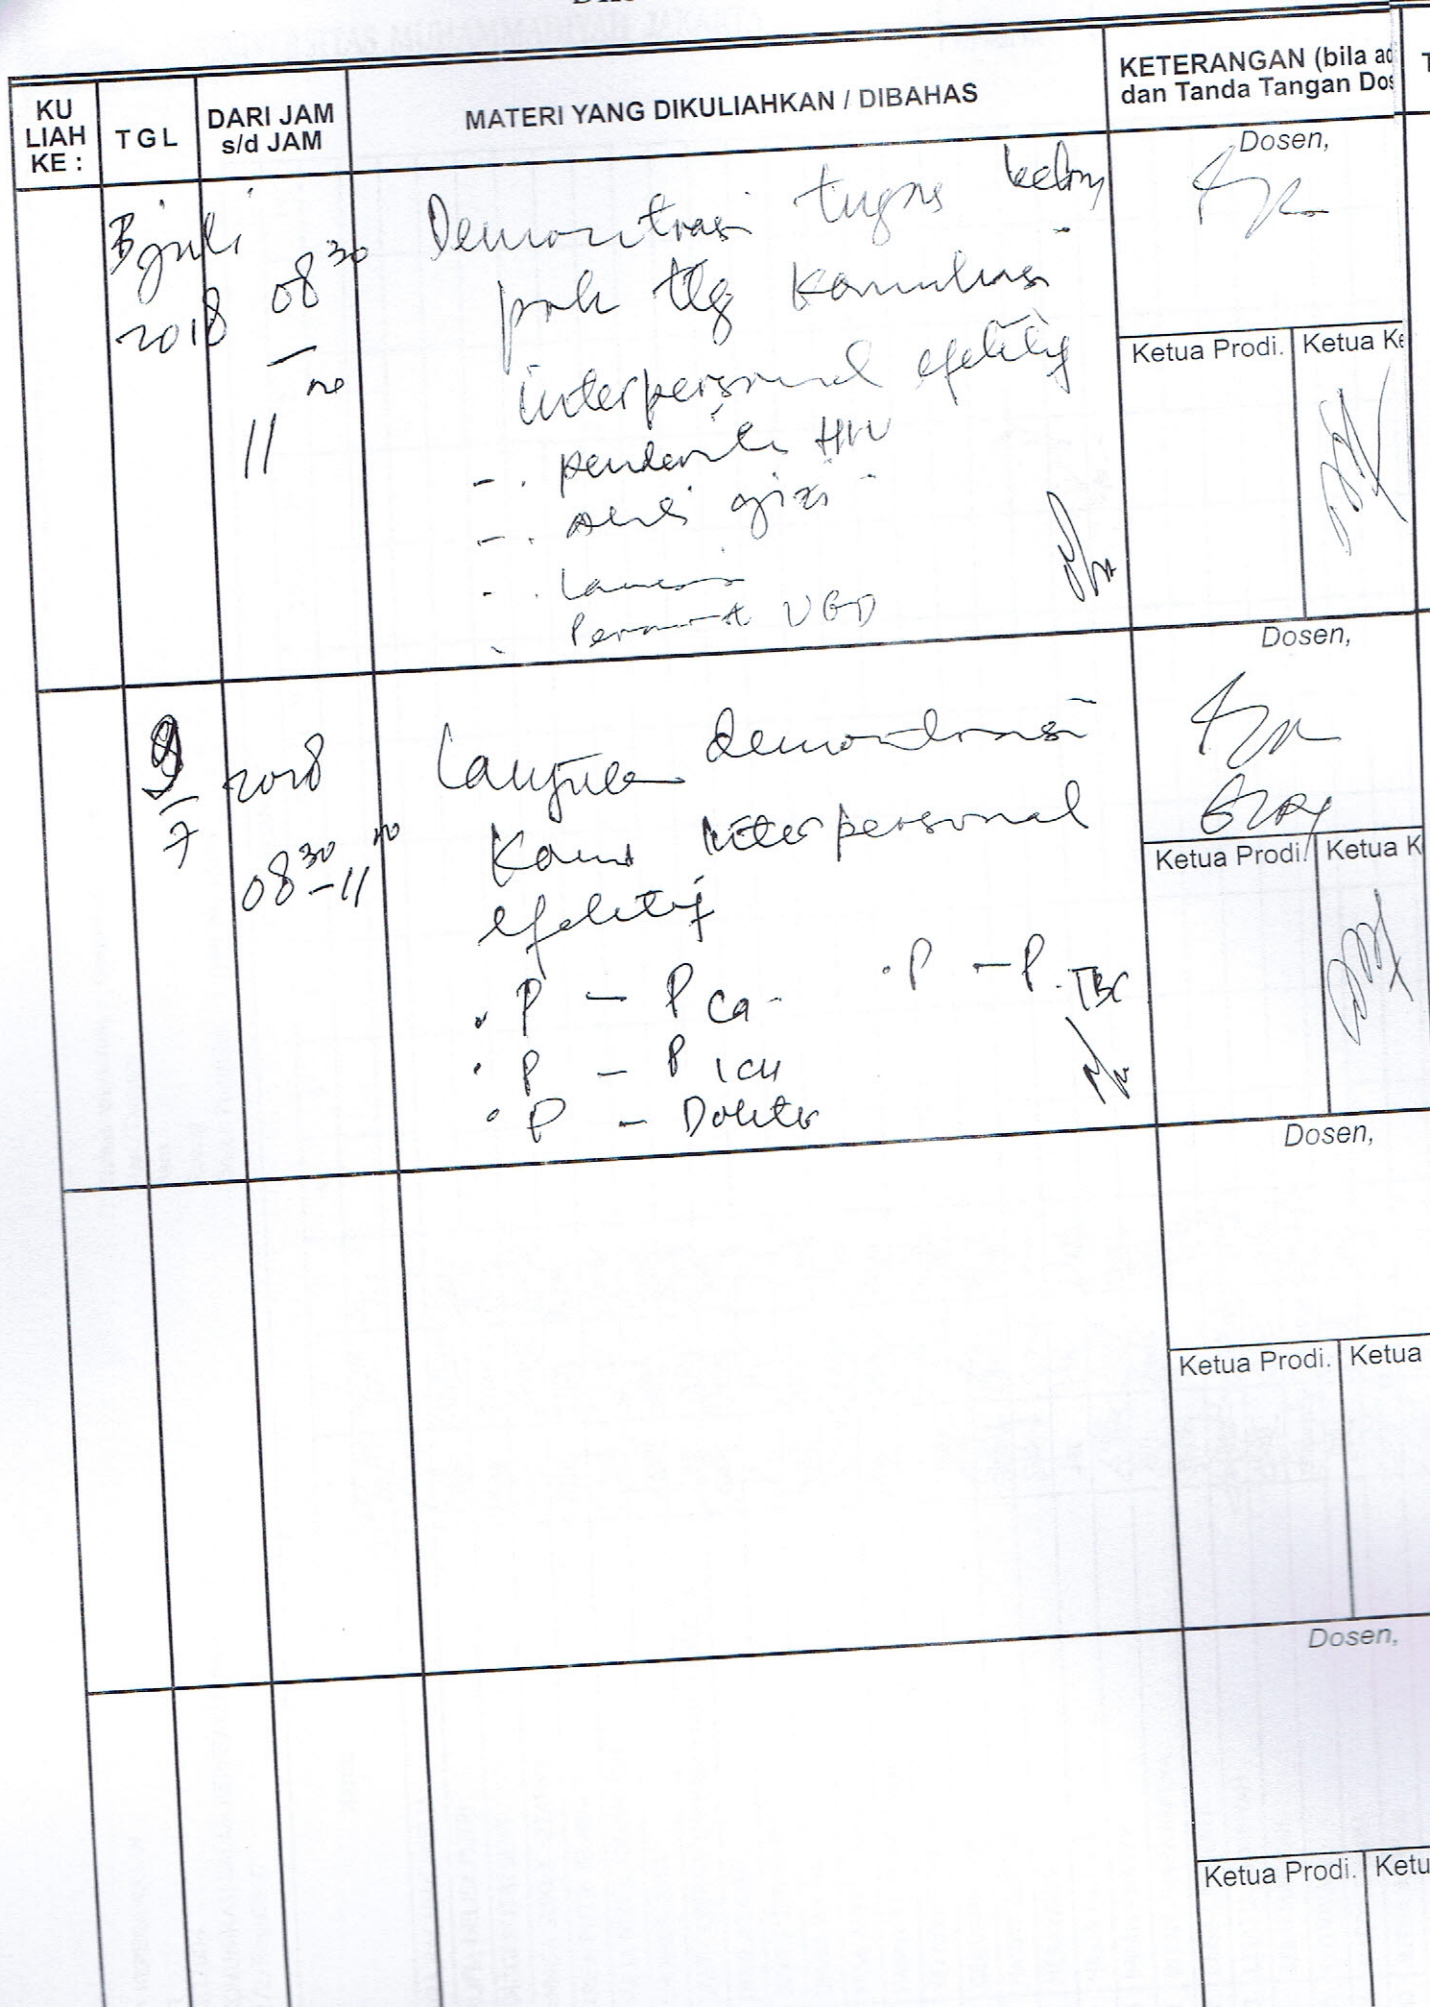 KU LIAH KE :
TGL
DARI JAM s/d JAM
MATERI YANG DIKULIAHKAN / DIBAHAS
KETERANGAN (bila ad
dan Tanda Tangan Dos
Dosen,
juli
2018
08 30
–
11
Demontrasi tugas
pok ttg
interpersonal efektif
- . penderita HIV
- . gizi
- . Lansia
UGD
Ketua Prodi.
Ketua Ke
Dosen,
9
7
2018
08 30 – 11
Lanjutan demontrasi
Kom interpersonal
efektif
. P – P Ca
. P – P. TBC
. P – P ICU
. P – Dokter
Ketua Prodi.
Ketua K
Dosen,
Ketua Prodi.
Ketua
Dosen,
Ketua Prodi.
Ketu